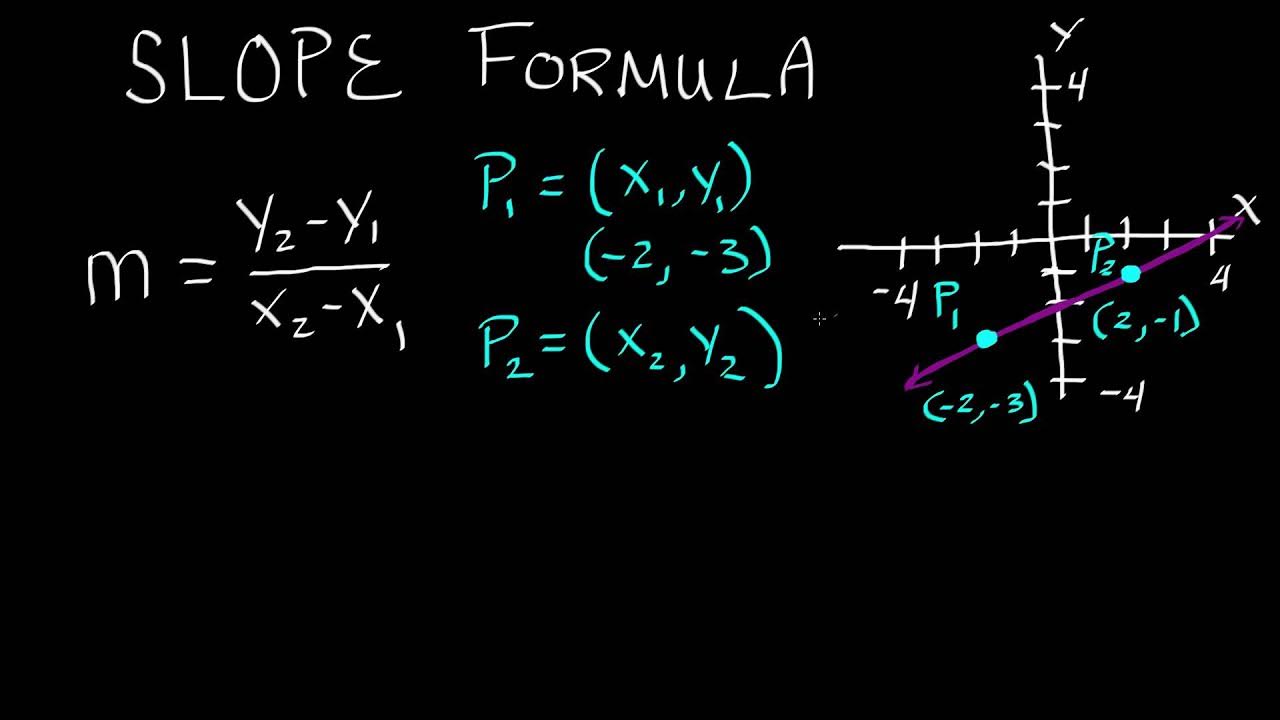 SLOPE FORMULA
m = Y₂-Y₁
X₂-X₁
P₁ = (X₁,Y₁)
(-2, -3)
P₂ = (X₂,Y₂)
Y
4
X
-4
4
P₁
P₂
(2,-1)
(-2,-3)
-4